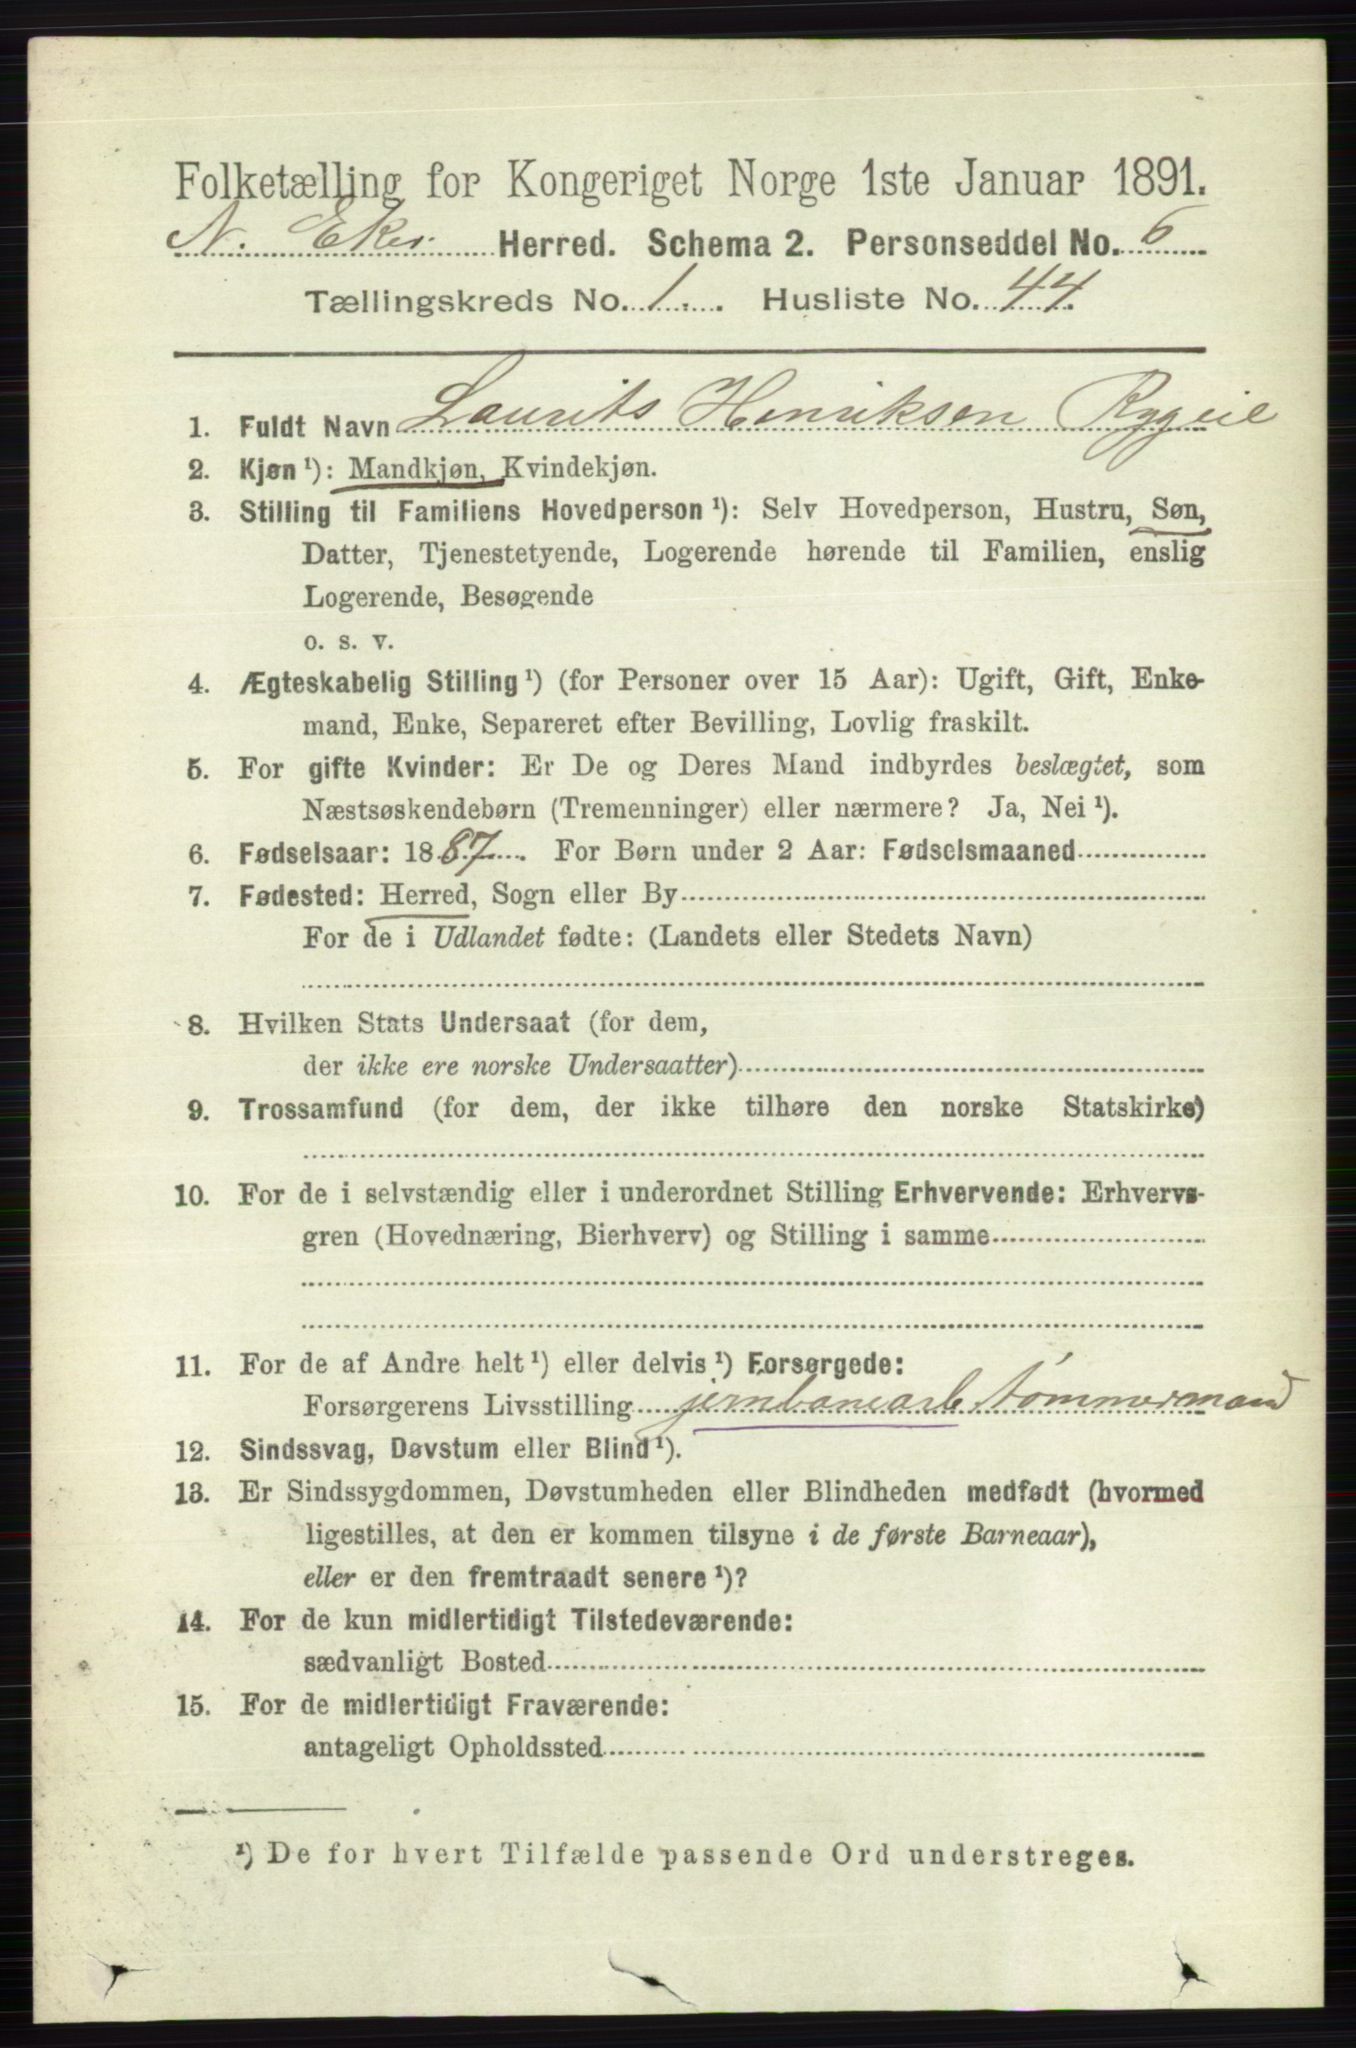 Folketælling for Kongeriget Norge 1ste Januar 1891.
N. Eker Herred. Schema 2. Personseddel No. 6
Tællingskreds No. 1. Husliste No. 44.
1. Fuldt Navn Laurits Henriksen
2. Kjøn ¹): Mandkjøn, Kvindekjøn.
3. Stilling til Familiens Hovedperson ¹): Selv Hovedperson, Hustru, Søn,
Datter, Tjenestetyende, Logerende hørende til Familien, enslig
Logerende, Besøgende
o. s. v.
4. Ægteskabelig Stilling ¹) (for Personer over 15 Aar): Ugift, Gift, Enke-
mand, Enke, Separeret efter Bevilling, Lovlig fraskilt.
5. For gifte Kvinder: Er De og Deres Mand indbyrdes beslægtet, som
Næstsøskendebørn (Tremenninger) eller nærmere? Ja, Nei ¹).
6. Fødselsaar: 1887. For Børn under 2 Aar: Fødselsmaaned
7. Fødested: Herred, Sogn eller By
For de i Udlandet fødte: (Landets eller Stedets Navn)
8. Hvilken Stats Undersaat (for dem,
der ikke ere norske Undersaatter)
9. Trossamfund (for dem, der ikke tilhøre den norske Statskirke)
10. For de i selvstændig eller i underordnet Stilling Erhvervende: Erhvervs-
gren (Hovednæring, Bierhverv) og Stilling i samme
11. For de af Andre helt ¹) eller delvis ¹) Forsørgede:
Forsørgerens Livsstilling jernbanearb tømmermand
12. Sindssvag, Døvstum eller Blind ¹).
13. Er Sindssygdommen, Døvstumheden eller Blindheden medfødt (hvormed
ligestilles, at den er kommen tilsyne i de første Barneaar),
eller er den fremtraadt senere ¹)?
14. For de kun midlertidigt Tilstedeværende:
sædvanligt Bosted
15. For de midlertidigt Fraværende:
antageligt Opholdssted
¹) De for hvert Tilfælde passende Ord understreges.